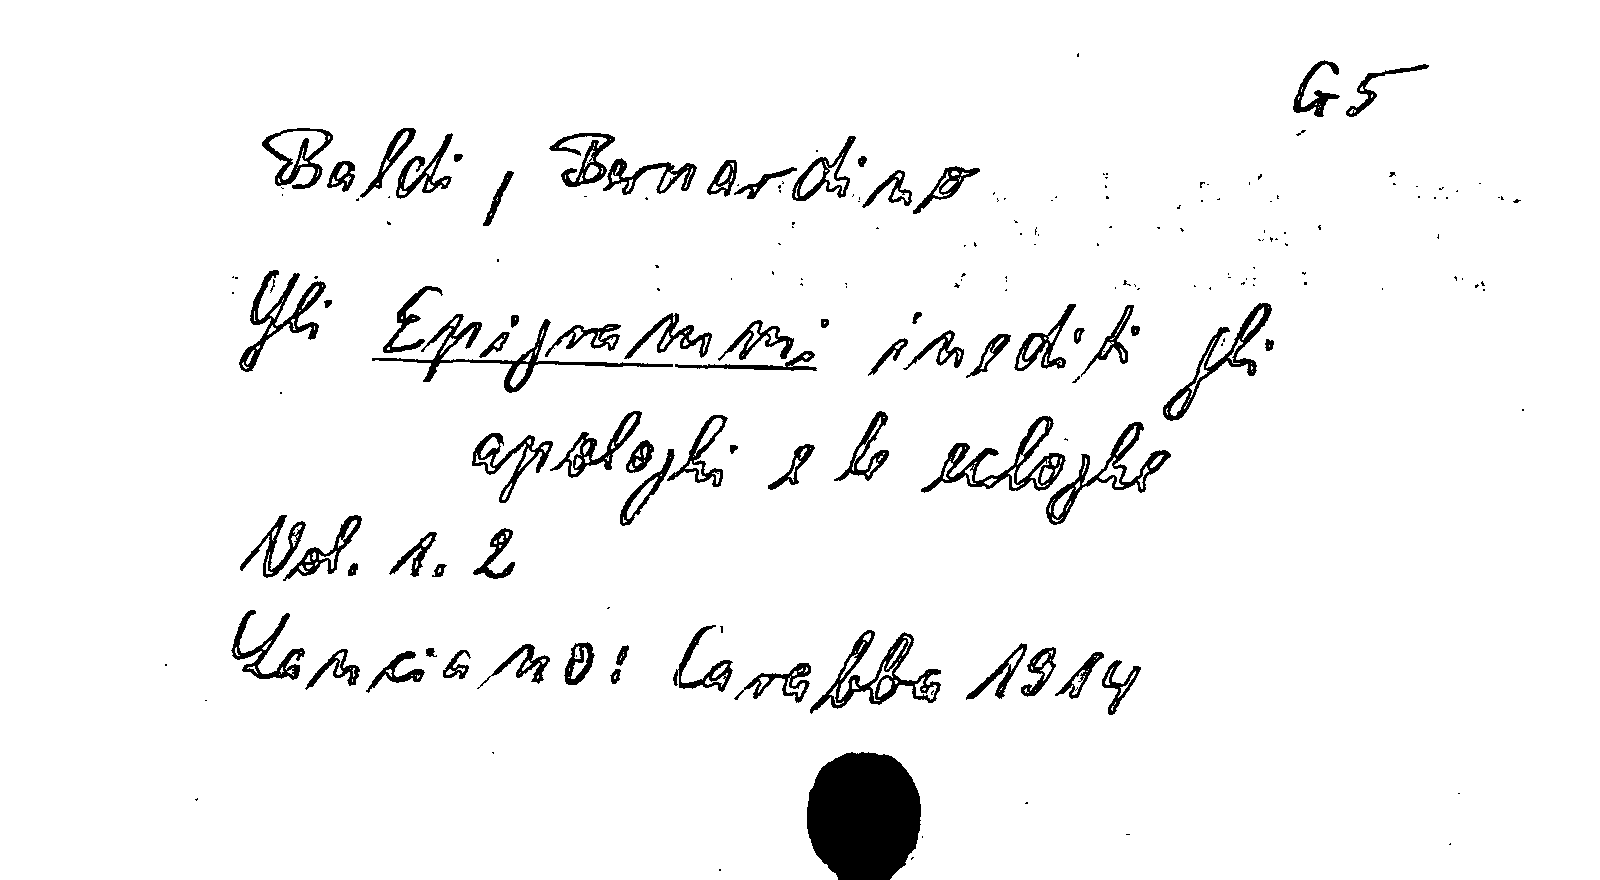 G5
Baldi, Bernardino
Gli Epigrammi inediti gli
apologhi e le ecloghe
Vol. 1. 2
Lanciano: Carabba 1914